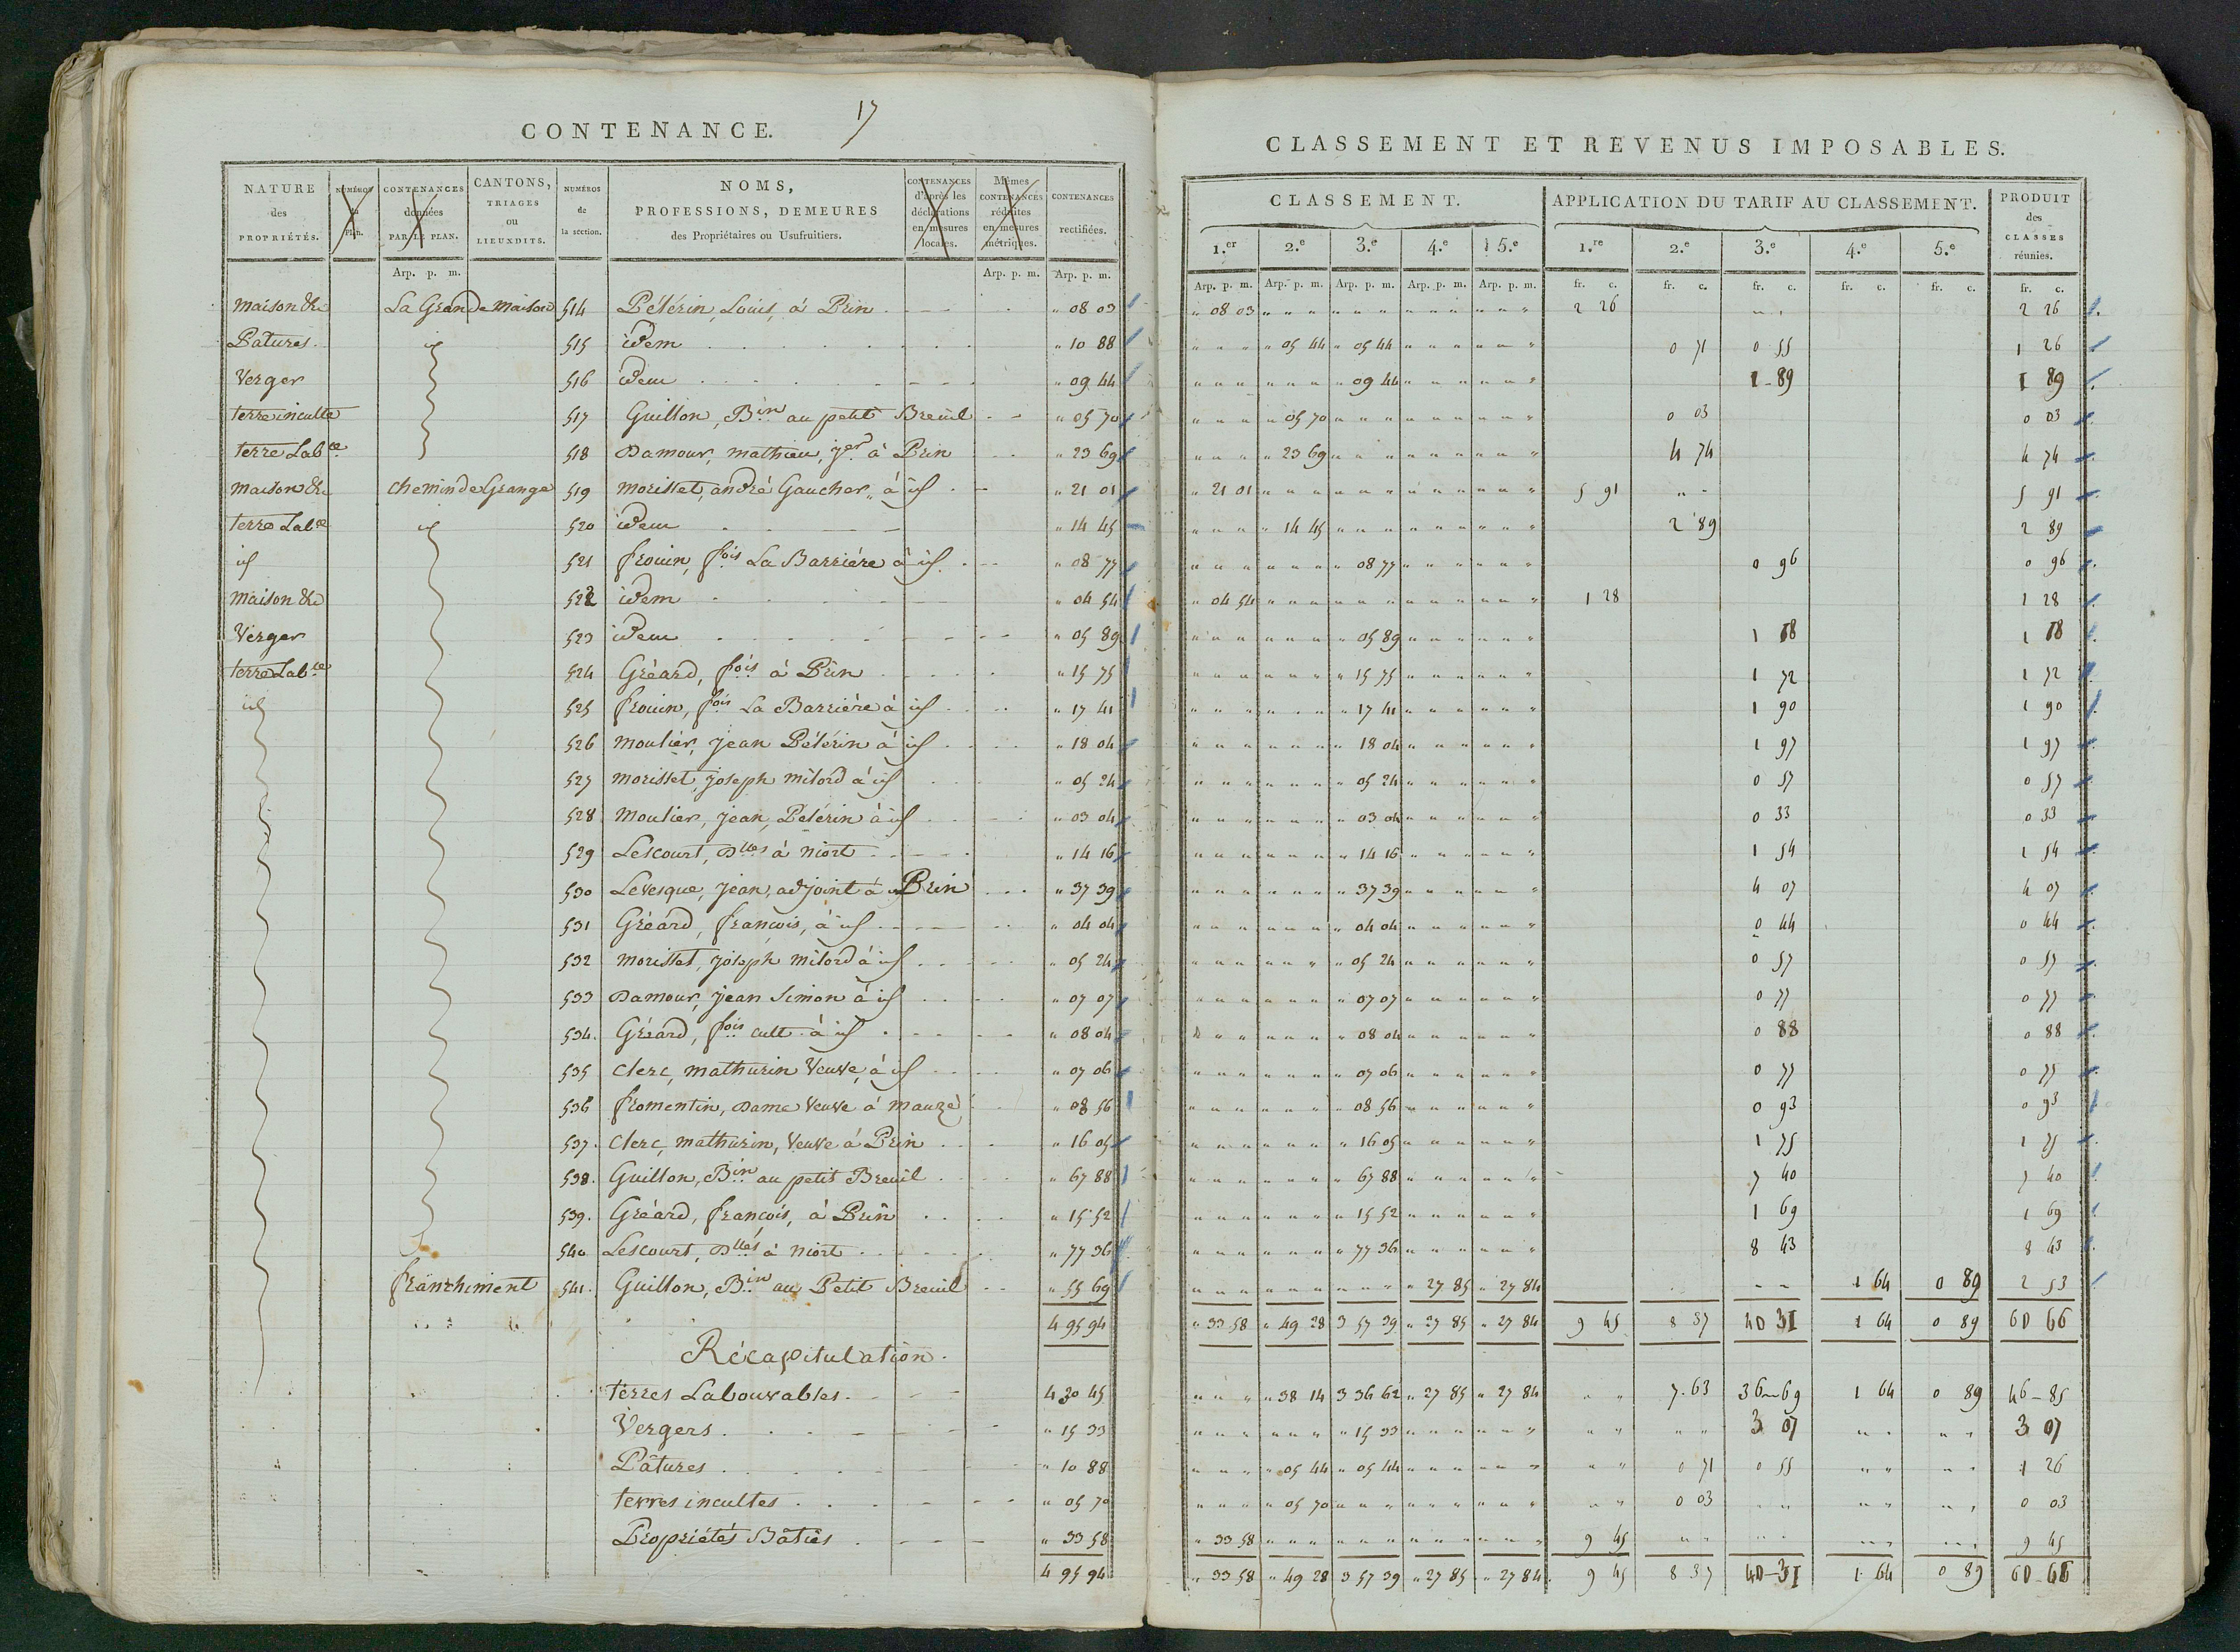 17
CONTENANCE.
NATURE des PROPRIÉTÉS. NUMÉROS du PLAN. CONTENANCES données PAR LE PLAN. CANTONS, TRIAGES ou LIEUXDITS. NUMÉROS de la section. NOMS, PROFESSIONS, DEMEURES des Propriétaires ou Usufruitiers. CONTENANCES d'après les déclarations en mesures locales. Mêmes CONTENANCES réduites en mesures métriques. CONTENANCES rectifiées.
Arp. p. m. Arp. p. m. Arp. p. m.
Maison &c La Grande Maison 514 Pélérin, Louis, à Prin " 08 03
Patures id 515 idem " 10 88
Verger 516 idem " 09 44
terre inculte 517 Guillon, Bin au petit Breuil " 05 70
terre Labce 518 Damour, mathieu, jer à Prin " 23 69
maison &c chemin de Grange 519 morisset, andré Gaucher, à id " 21 01
terre Labce id 520 idem " 14 45
id 521 frouin, fois La Barriére à id " 08 77
Maison &c 522 idem " 04 54
Verger 523 idem " 05 89
terre Labce 524 Gréard, fois à Prin " 15 75
id 525 frouin, fois La Barrière à id " 17 41
526 moulier, jean Pélérin à id " 18 04
527 morisset, joseph milord à id " 05 24
528 Moulier, jean, Pélérin à id " 03 04
529 Lescourt, Dlles à niort " 14 16
530 Levesque, jean, adjoint à Prin " 37 39
531 Gréard, françois, à id " 04 04
532 morisset, joseph milord à id " 05 24
533 Damour, jean Simon à id " 07 07
534. Gréard, fois cult. à id " 08 04
535 Clerc, mathurin Veuve, à id " 07 06
536 fromentin, Dame Veuve à mauzé " 08 56
537. Clerc, mathurin, Veuve à Prin " 16 05
538. Guillon, Bin au petit Breuil " 67 88
539. Gréard, françois, à Prin " 15 52
540 Lescourt, Dlles à niort " 77 36
franchiment 541. Guillon, Bin au Petit Breuil " 55 69
4 95 94
Récapitulation.
terres Labourables. 4 30 45
Vergers " 15 33
Pâtures " 10 88
terres incultes " 05 70
Propriétés Bâties " 33 58
4 95 94
CLASSEMENT ET REVENUS IMPOSABLES.
CLASSEMENT. APPLICATION DU TARIF AU CLASSEMENT. PRODUIT des CLASSES réunies.
1.er 2.e 3.e 4.e 5.e 1.re 2.e 3.e 4.e 5.e
Arp. p. m. Arp. p. m. Arp. p. m. Arp. p. m. Arp. p. m. fr. c. fr. c. fr. c. fr. c. fr. c. fr. c.
" 08 03 2 26 2 26
" 05 44 " 05 44 0 71 0 55 1 26
" 09 44 1 89 1 89
" 05 70 0 03 0 03
" 23 69 4 74 4 74
" 21 01 5 91 5 91
" 14 45 2 89 2 89
" 08 77 0 96 0 96
" 04 54 1 28 1 28
" 05 89 1 18 1 18
" 15 75 1 72 1 72
" 17 41 1 90 1 90
" 18 04 1 97 1 97
" 05 24 0 57 0 57
" 03 04 0 33 0 33
" 14 16 1 54 1 54
" 37 39 4 07 4 07
" 04 04 0 44 0 44
" 05 24 0 57 0 57
" 07 07 0 77 0 77
" 08 04 0 88 0 88
" 07 06 0 77 0 77
" 08 56 0 93 0 93
" 16 05 1 75 1 75
" 67 88 7 40 7 40
" 15 52 1 69 1 69
" 77 36 8 43 8 43
" 27 85 " 27 84 1 64 0 89 2 53
" 33 58 " 49 28 3 57 39 " 27 85 " 27 84 9 45 8 37 40 31 1 64 0 89 60 66
" 38 14 3 36 62 " 27 85 " 27 84 7.63 36 69 1 64 0 89 46 85
" 15 33 3 07 3 07
" 05 44 " 05 44 0 71 0 55 1 26
" 05 70 0 03 0 03
" 33 58 9 45 9 45
" 33 58 " 49 28 3 57 39 " 27 85 " 27 84 9 45 8 37 40 31 1 64 0 89 60 66